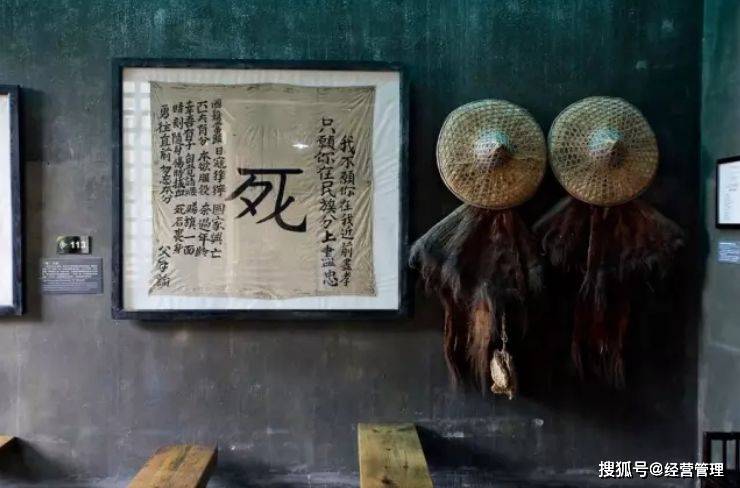 我不願你在我近前盡孝
只願你在民族分上盡忠
死
國難當頭 日寇猙獰 國家興亡
匹夫有分 本欲服役 奈過年齡
幸吾有子 自覺請纓 賜旗一面
時刻隨身 傷時拭血 死后裹身
勇往直前 勿忘本分
父手諭
113
搜狐号@经营管理